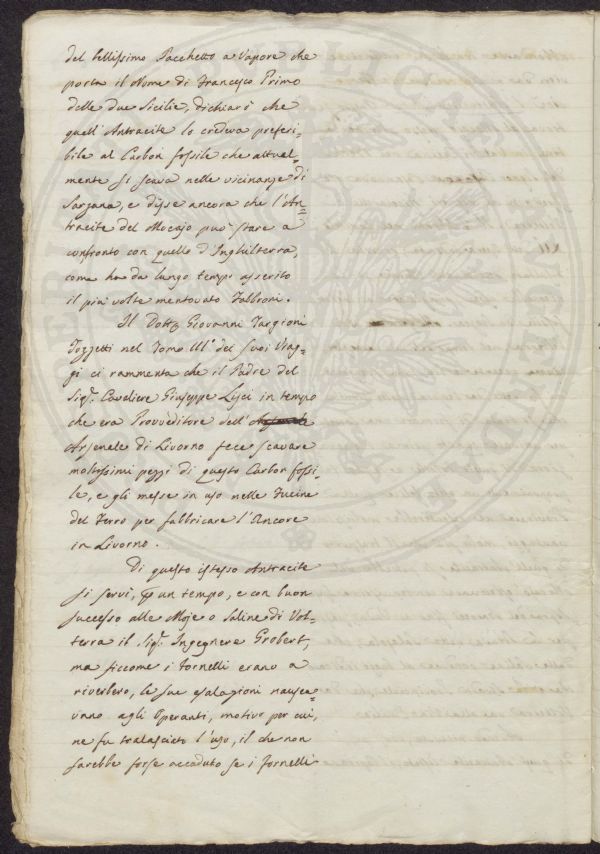 del bellissimo Pacchetto a Vapore che
porta il Nome di Francesco Primo
delle due Sicilie, dichiarò che
quell'Antracite lo credeva preferi-
bile al Carbon fossile che attual-
mente si scava nelle vicinanze di
Sarzana, e disse ancora che l'An-
tracite del Mocajo può stare a
confronto con quello d'Inghilterra,
come ha da lungo tempo asserito
il più volte mentovato Fabbroni.
Il Dott. Giovanni Targioni
Tozzetti nel Tomo III° dei suoi Viag-
gi ci rammenta che il Padre del
Sig. Cavaliere Giuseppe Lisci in tempo
che era Provveditore dell'
Arsenale di Livorno fece scavare
moltissimi pezzi di questo Carbon fossi-
le, e gli messe in uso nelle Fucine
del Ferro per fabbricare l'Ancore
in Livorno.
Di questo istesso Antracite
si servì, un tempo, e con buon
successo alle Moje o Saline di Vol-
terra il Sig. Ingegnere Grobert,
ma siccome i Fornelli erano a
riverbero, le sue esalazioni nausea-
vano agli Operanti, motivo per cui,
ne fu tralasciato l'uso, il che non
sarebbe forse accaduto se i Fornelli